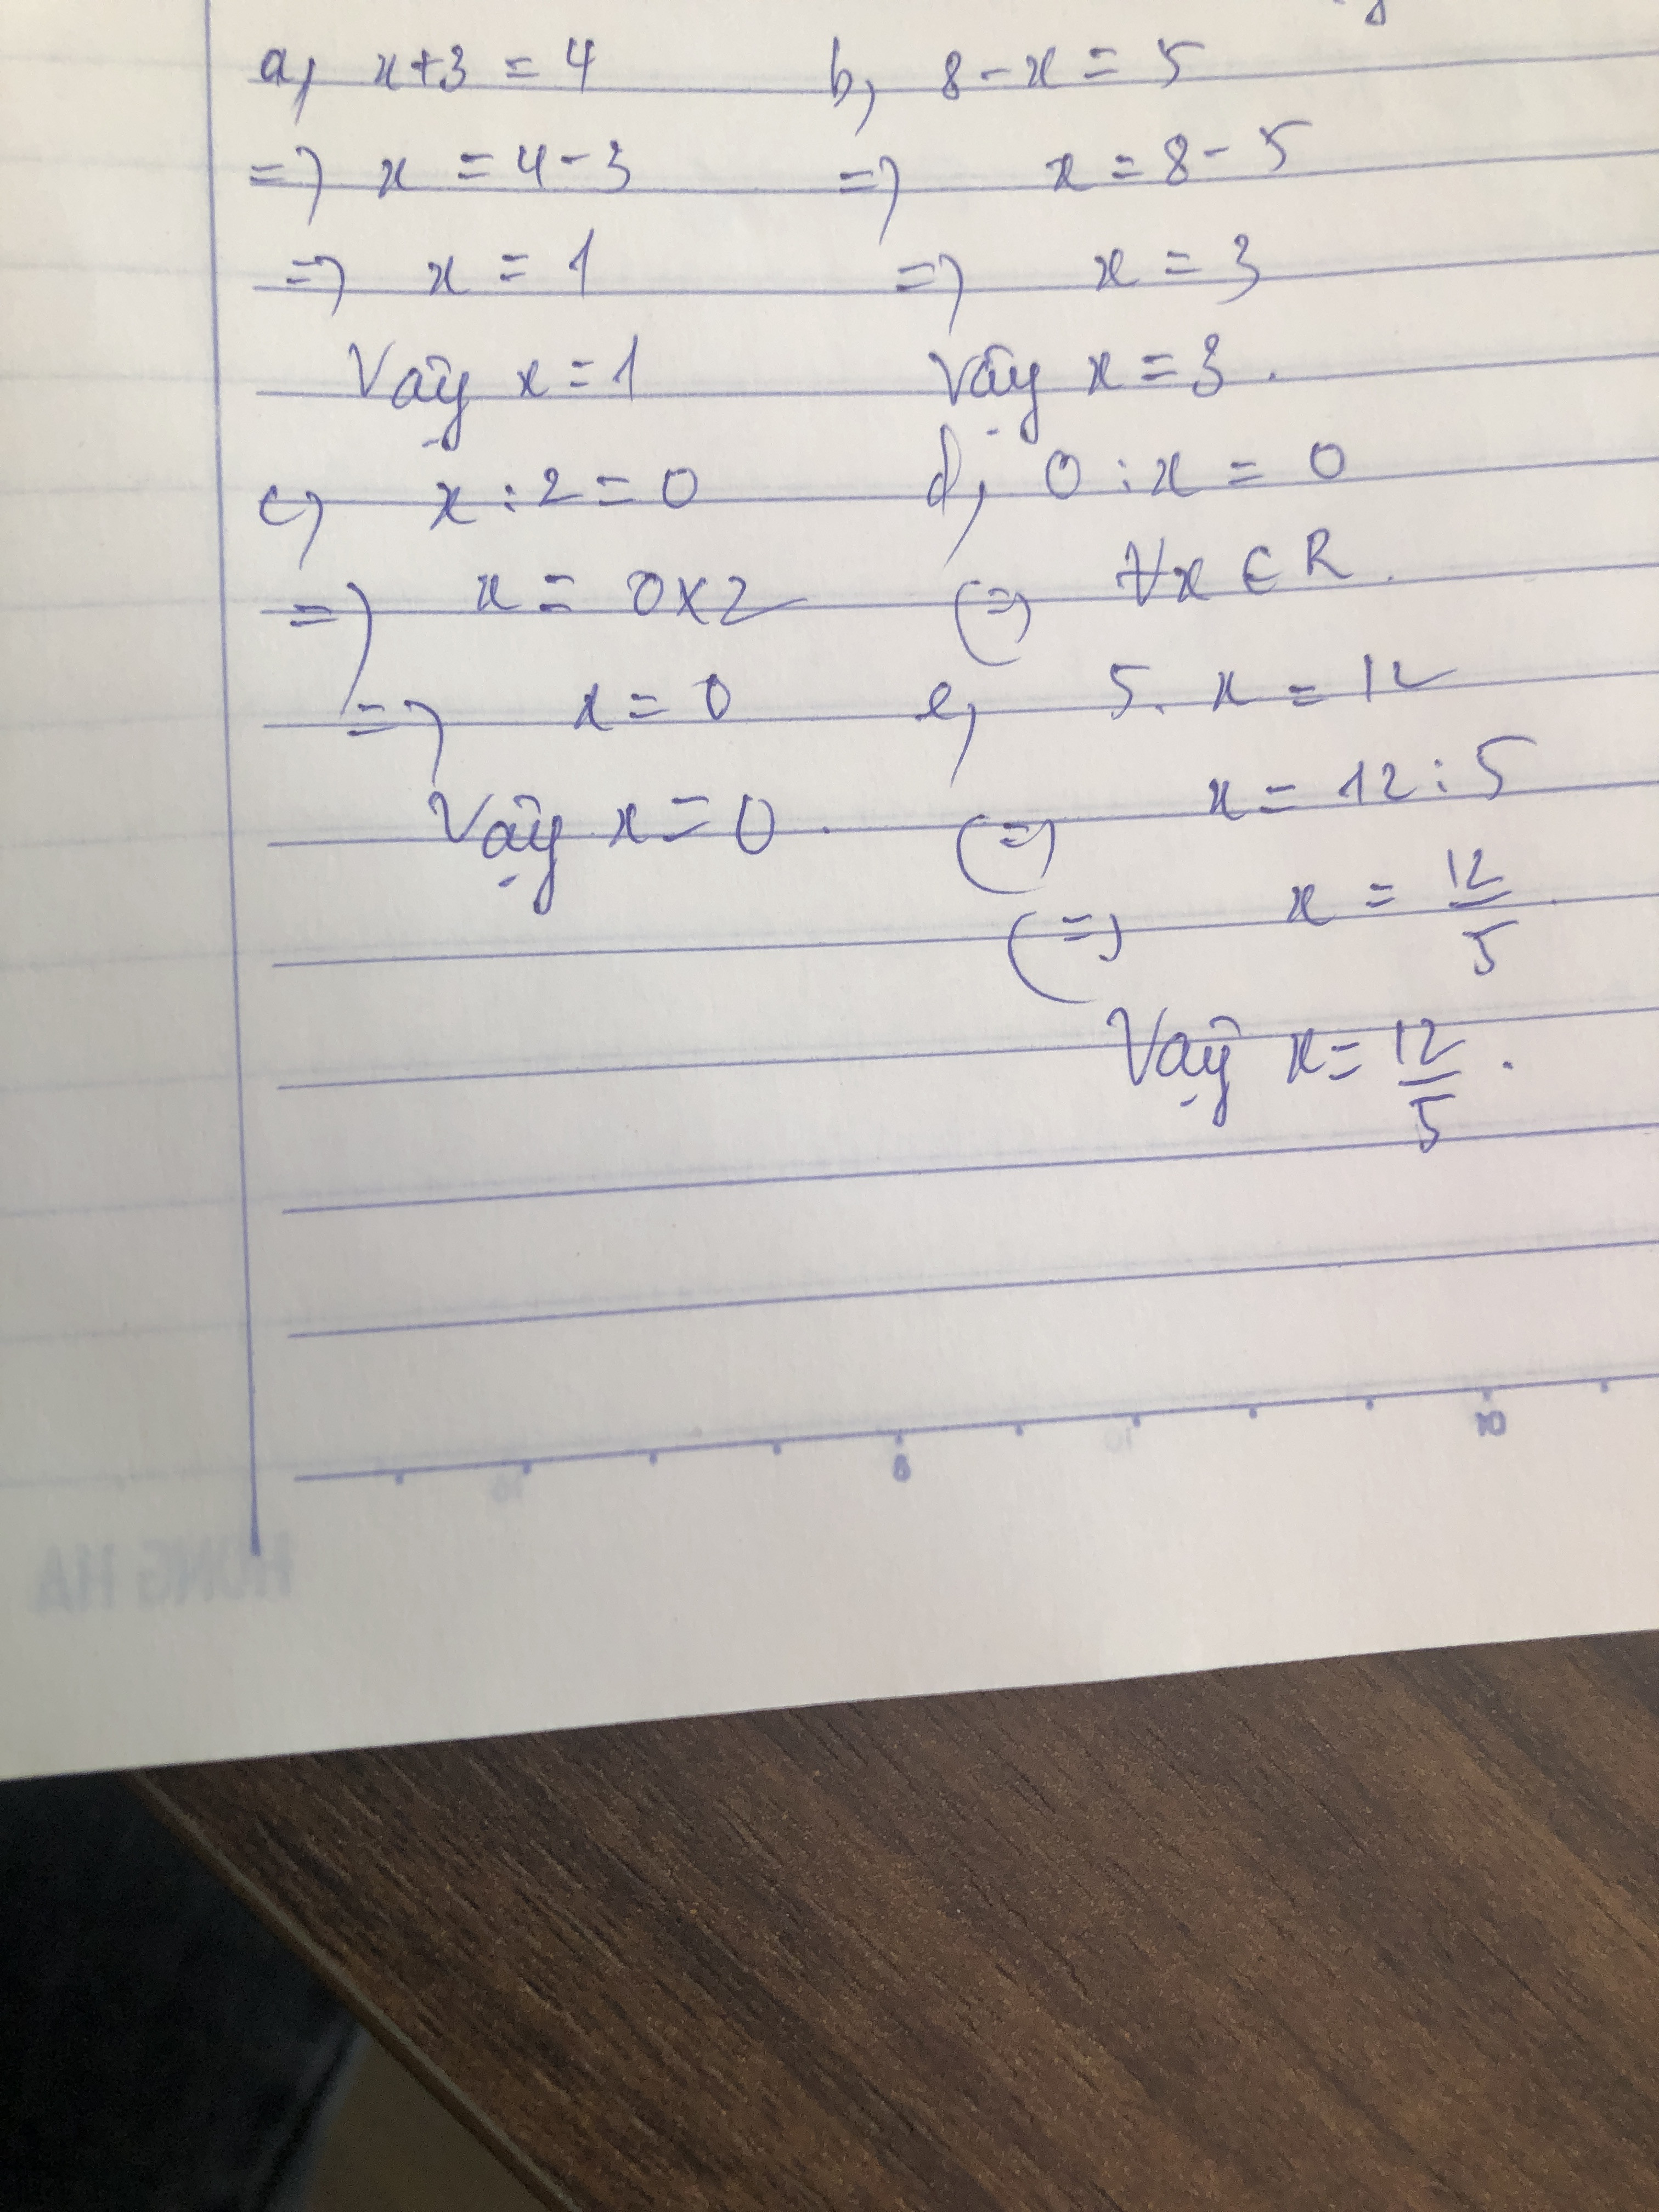 a, x+3 = 4
=> x = 4-3
=> x = 1
Vậy x = 1
b, 8-x = 5
=> x = 8-5
=> x = 3
Vậy x = 3.
c, x : 2 = 0
=> x = 0x2
=> x = 0
Vậy x = 0.
d, 0 : x = 0
(=) ∀x ∈ R.
e, 5. x = 12
(=) x = 12 : 5
(=) x = 12/5.
Vậy x = 12/5.
8
10
HONG HA